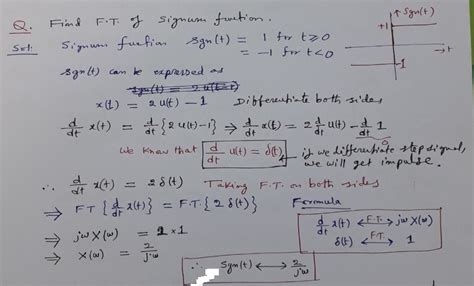 Q. Find F.T. of Signum function.
Sol: Signum function sgn(t) = 1 for t≥0
= -1 for t<0
sgn(t)
+1
t
-1
sgn(t) can be expressed as
sgn(t) = 2u(t)-1
x(t) = 2u(t) - 1 Differentiate both sides
d/dt x(t) = d/dt {2u(t)-1} ⇒ d/dt x(t) = 2 d/dt u(t) - d/dt 1
0
we know that d/dt u(t) = δ(t) ← if we differentiate step signal,
we will get impulse.
∴ d/dt x(t) = 2 δ(t) Taking F.T. on both sides
⇒ FT{d/dt x(t)} = F.T.{2 δ(t)} Formula
⇒ jω X(ω) = 2 × 1
d/dt x(t) ←F.T.→ jω X(ω)
δ(t) ←F.T.→ 1
⇒ X(ω) = 2/jω
∴ Sgn(t) ↔ 2/jω